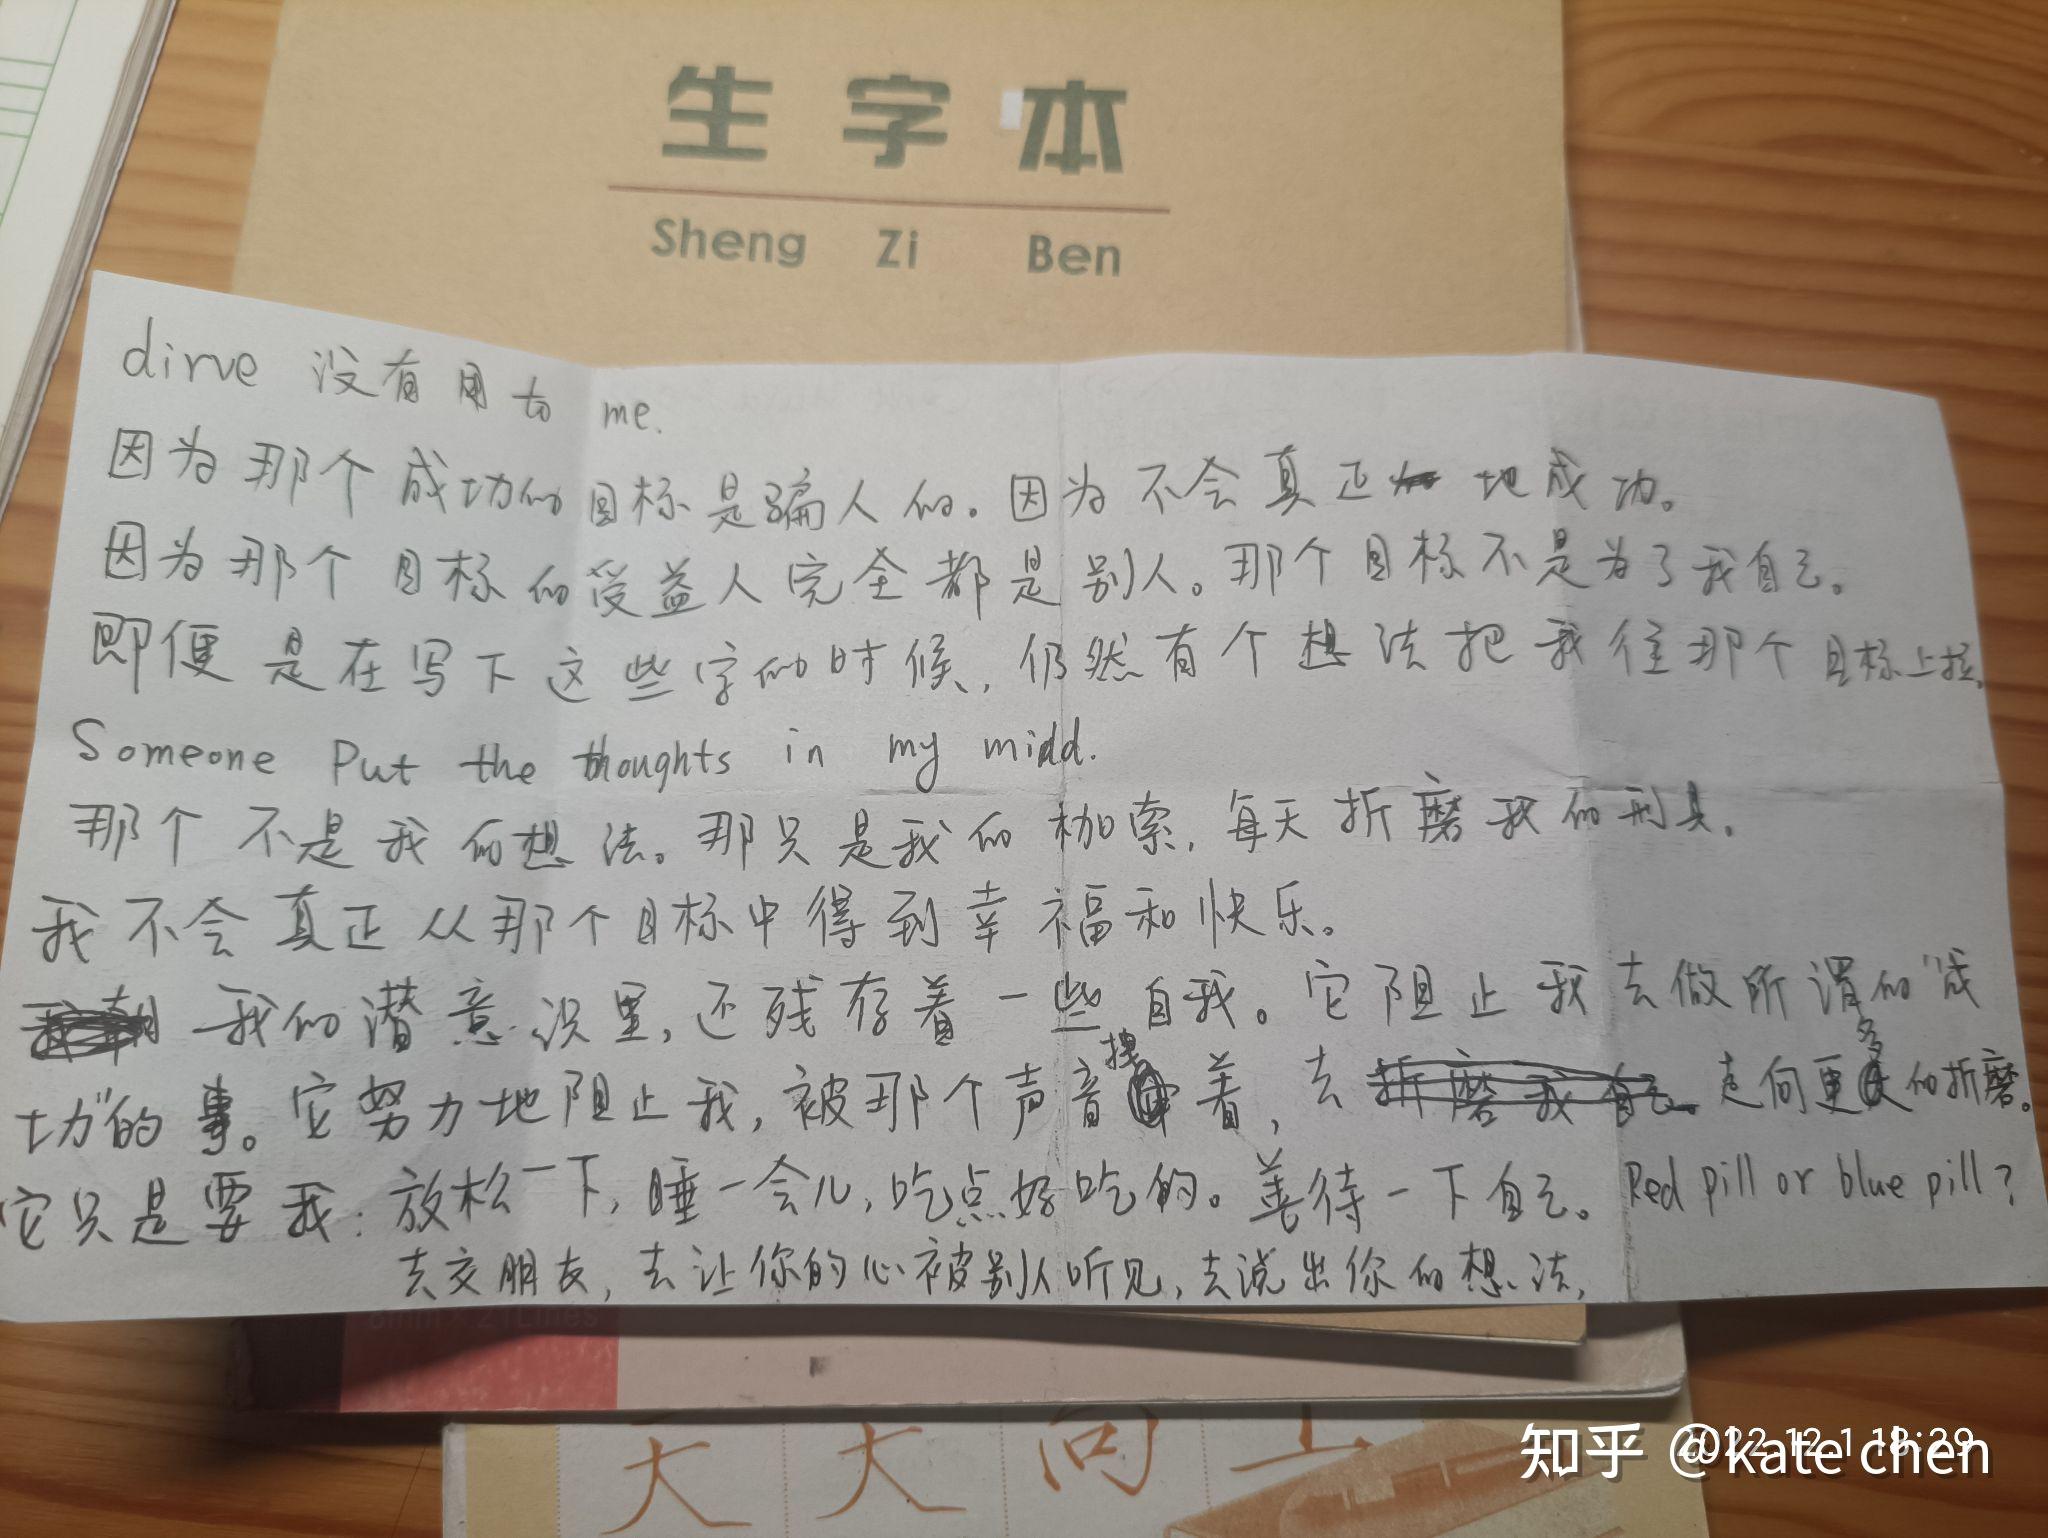 生字本
Sheng Zi Ben
dirve 没有用 to me.
因为那个成功的目标是骗人的。因为不会真正地成功。
因为那个目标的受益人完全都是别人。那个目标不是为了我自己。
即便是在写下这些字的时候,仍然有个想法把我往那个目标上拉。
Someone Put the thoughts in my midd.
那个不是我的想法。那只是我的枷索,每天折磨我的刑具。
我不会真正从那个目标中得到幸福和快乐。
我的潜意识里,还残存着一些自我。它阻止我去做所谓的"成
功"的事。它努力地阻止我,被那个声音拽着,去折磨我自己。走向更多的折磨。
它只是要我:放松一下,睡一会儿,吃点好吃的。善待一下自己。Red pill or blue pill?
去交朋友,去让你的心被别人听见,去说出你的想法,
8mm×21Lines
天天向上
2022.12.1 18:29
知乎 @kate chen